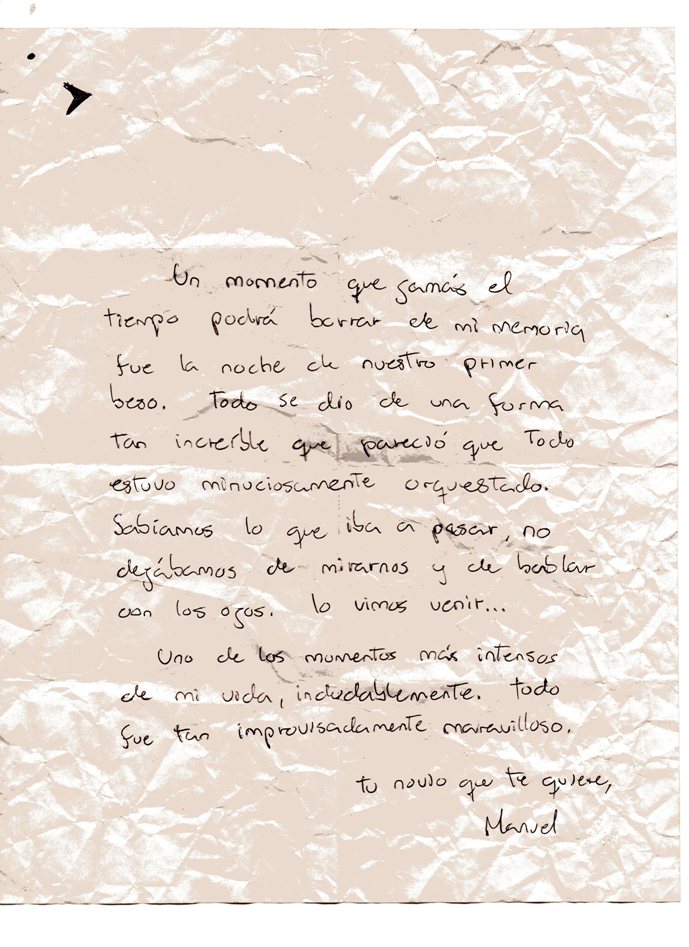 Un momento que jamás el
tiempo podrá borrar de mi memoria
fue la noche de nuestro primer
beso. Todo se dio de una forma
tan increíble que pareció que todo
estuvo minuciosamente orquestado.
Sabíamos lo que iba a pasar, no
dejábamos de mirarnos y de hablar
con los ojos. Lo vimos venir...
Uno de los momentos más intensos
de mi vida, indudablemente. Todo
fue tan improvisadamente maravilloso.
tu novio que te quiere,
Manuel